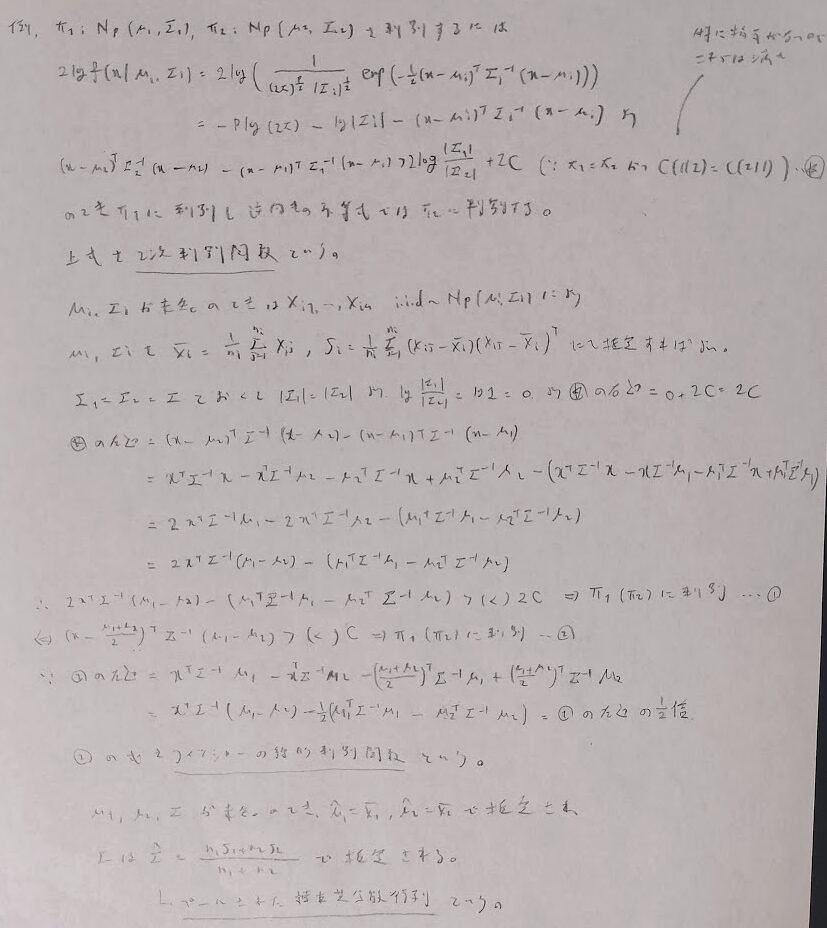 例, π₁: Np(μ₁, Σ₁), π₂: Np(μ₂, Σ₂) を判別するには
特に指定がないので
2log f(x|μᵢ, Σᵢ) = 2log( 1/((2π)^{p/2} |Σᵢ|^{1/2}) exp(-1/2(x-μᵢ)ᵀΣᵢ⁻¹(x-μᵢ)))
= -Plog(2π) - log|Σᵢ| - (x-μᵢ)ᵀΣᵢ⁻¹(x-μᵢ) より
(x-μ₂)ᵀΣ₂⁻¹(x-μ₂) - (x-μ₁)ᵀΣ₁⁻¹(x-μ₁) > 2log |Σ₁|/|Σ₂| + 2C (∵ π₁=π₂ かつ C(1|2)=C(2|1))
のとき π₁に判別し 逆向きの不等式では π₂に判別する。
上式を 2次判別関数 という。
μᵢ, Σᵢ が未知 のときは Xᵢ₁, …, Xᵢₙ i.i.d ~ Np(μᵢ, Σᵢ) により
μᵢ, Σᵢ を X̄ᵢ = 1/nᵢ Σ_{j=1}^{nᵢ} Xᵢⱼ, Sᵢ = 1/nᵢ Σ_{j=1}^{nᵢ} (Xᵢⱼ-X̄ᵢ)(Xᵢⱼ-X̄ᵢ)ᵀ にて推定すればよい。
Σ₁=Σ₂=Σ とおくと |Σ₁|=|Σ₂| より log |Σ₁|/|Σ₂| = log1 = 0. より の右辺 = 0+2C = 2C
の左辺 = (x-μ₂)ᵀΣ⁻¹(x-μ₂) - (x-μ₁)ᵀΣ⁻¹(x-μ₁)
= xᵀΣ⁻¹x - xᵀΣ⁻¹μ₂ - μ₂ᵀΣ⁻¹x + μ₂ᵀΣ⁻¹μ₂ - (xᵀΣ⁻¹x - xΣ⁻¹μ₁ - μ₁ᵀΣ⁻¹x + μ₁ᵀΣ⁻¹μ₁)
= 2xᵀΣ⁻¹μ₁ - 2xᵀΣ⁻¹μ₂ - (μ₁ᵀΣ⁻¹μ₁ - μ₂ᵀΣ⁻¹μ₂)
= 2xᵀΣ⁻¹(μ₁-μ₂) - (μ₁ᵀΣ⁻¹μ₁ - μ₂ᵀΣ⁻¹μ₂)
∴ 2xᵀΣ⁻¹(μ₁-μ₂) - (μ₁ᵀΣ⁻¹μ₁ - μ₂ᵀΣ⁻¹μ₂) > (<) 2C ⇒ π₁(π₂)に判別 … ①
⇔ (x - (μ₁+μ₂)/2)ᵀΣ⁻¹(μ₁-μ₂) > (<) C ⇒ π₁(π₂)に判別 … ②
∵ ②の左辺 = xᵀΣ⁻¹μ₁ - xᵀΣ⁻¹μ₂ - ((μ₁+μ₂)/2)ᵀΣ⁻¹μ₁ + ((μ₁+μ₂)/2)ᵀΣ⁻¹μ₂
= xᵀΣ⁻¹(μ₁-μ₂) - 1/2(μ₁ᵀΣ⁻¹μ₁ - μ₂ᵀΣ⁻¹μ₂) = ①の左辺の1/2倍
②の式をフィッシャーの線形判別関数 という。
μ₁, μ₂, Σ が未知 のとき, μ̂₁=X̄₁, μ̂₂=X̄₂ で推定され
Σは Σ̂ = (n₁S₁+n₂S₂)/(n₁+n₂) で推定される。
プールされた標本共分散行列 という。